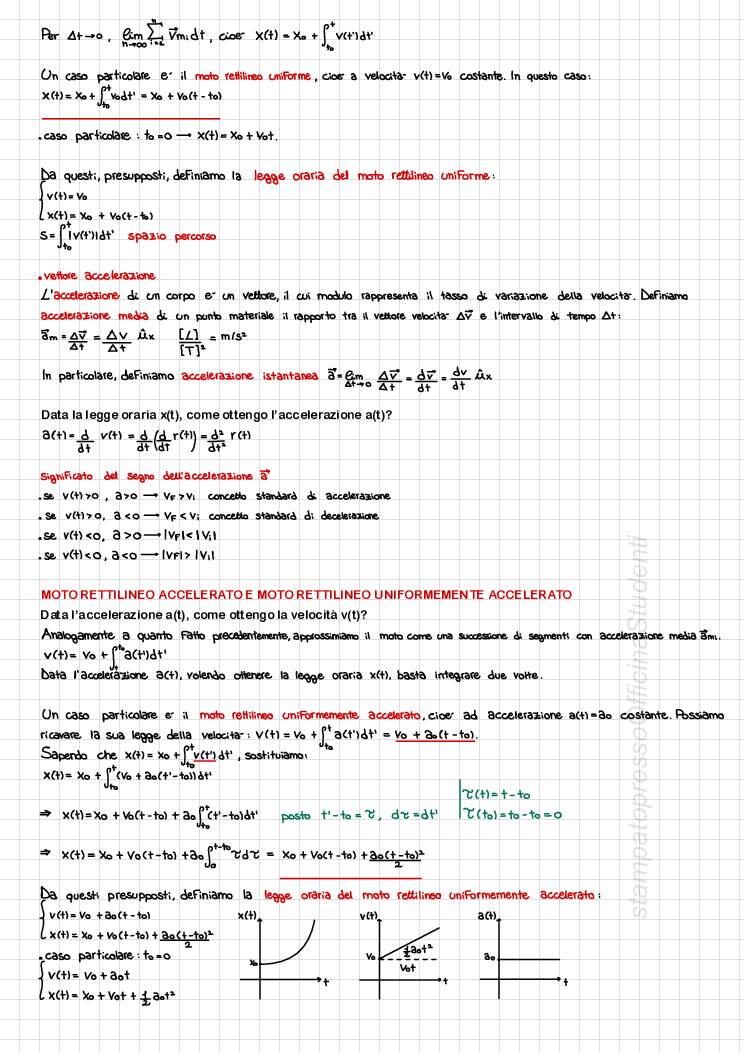 Per Δt→0, lim n→∞ Σ i=1 n V⃗mi dt, cioe' x(t) = x0 + ∫t0 t v(t')dt'
Un caso particolare e' il moto rettilineo uniforme, cioe' a velocita' v(t)=v0 costante. In questo caso:
x(t) = x0 + ∫t0 t v0dt' = x0 + v0(t-t0)
.caso particolare: t0=0 → x(t)= x0 + v0t.
Da questi, presupposti, definiamo la legge oraria del moto rettilineo uniforme:
v(t) = v0
x(t) = x0 + v0(t-t0)
S=∫t0 t |v(t')|dt' spazio percorso
.vettore accelerazione
L'accelerazione di un corpo e' un vettore, il cui modulo rappresenta il tasso di variazione della velocita'. Definiamo
accelerazione media di un punto materiale il rapporto tra il vettore velocita' Δv⃗ e l'intervallo di tempo Δt:
a⃗m = Δv⃗/Δt = Δv/Δt ûx [L]/[T]² = m/s²
In particolare, definiamo accelerazione istantanea a⃗= lim Δt→0 Δv⃗/Δt = dv⃗/dt = dv/dt ûx
Data la legge oraria x(t), come ottengo l'accelerazione a(t)?
a(t) = d/dt v(t) = d/dt (d/dt r(t)) = d²/dt² r(t)
Significato del segno dell'accelerazione a⃗
.se v(t)>0, a>0 → VF>Vi concetto standard di accelerazione
.se v(t)>0, a<0 → VF<Vi concetto standard di decelerazione
.se v(t)<0, a>0 → |VF|<|Vi|
.se v(t)<0, a<0 → |VF|>|Vi|
MOTO RETTILINEO ACCELERATO E MOTO RETTILINEO UNIFORMEMENTE ACCELERATO
Data l'accelerazione a(t), come ottengo la velocità v(t)?
Analogamente a quanto fatto precedentemente, approssimiamo il moto come una successione di segmenti con accelerazione media a⃗mi.
v(t) = v0 + ∫ t0 a(t')dt'
Data l'accelerazione a(t), volendo ottenere la legge oraria x(t), basta integrare due volte.
Un caso particolare e' il moto rettilineo uniformemente accelerato, cioe' ad accelerazione a(t)=a0 costante. Possiamo
ricavare la sua legge della velocita': v(t) = v0 + ∫t0 t a(t')dt' = v0 + a0(t-t0).
Sapendo che x(t) = x0 + ∫t0 t v(t')dt', sostituiamo:
x(t) = x0 + ∫t0 t (v0 + a0(t'-t0))dt'
⇒ x(t)=x0 + v0(t-t0) + a0∫t0 t (t'-t0)dt' posto t'-t0 = τ, dτ = dt' τ(t) = t-t0
τ(t0) = t0-t0 = 0
⇒ x(t) = x0 + v0(t-t0) + a0∫0 t-t0 τdτ = x0 + v0(t-t0) + a0(t-t0)²/2
Da questi presupposti, definiamo la legge oraria del moto rettilineo uniformemente accelerato:
v(t) = v0 + a0(t-t0)
x(t) = x0 + v0(t-t0) + a0(t-t0)²/2
.caso particolare: t0=0
v(t) = v0 + a0t
x(t) = x0 + v0t + 1/2 a0t²
x(t)
x0
t
v(t)
v0
1/2 a0t²
v0t
t
a(t)
a0
t
stampatopressoOfficinaStudenti